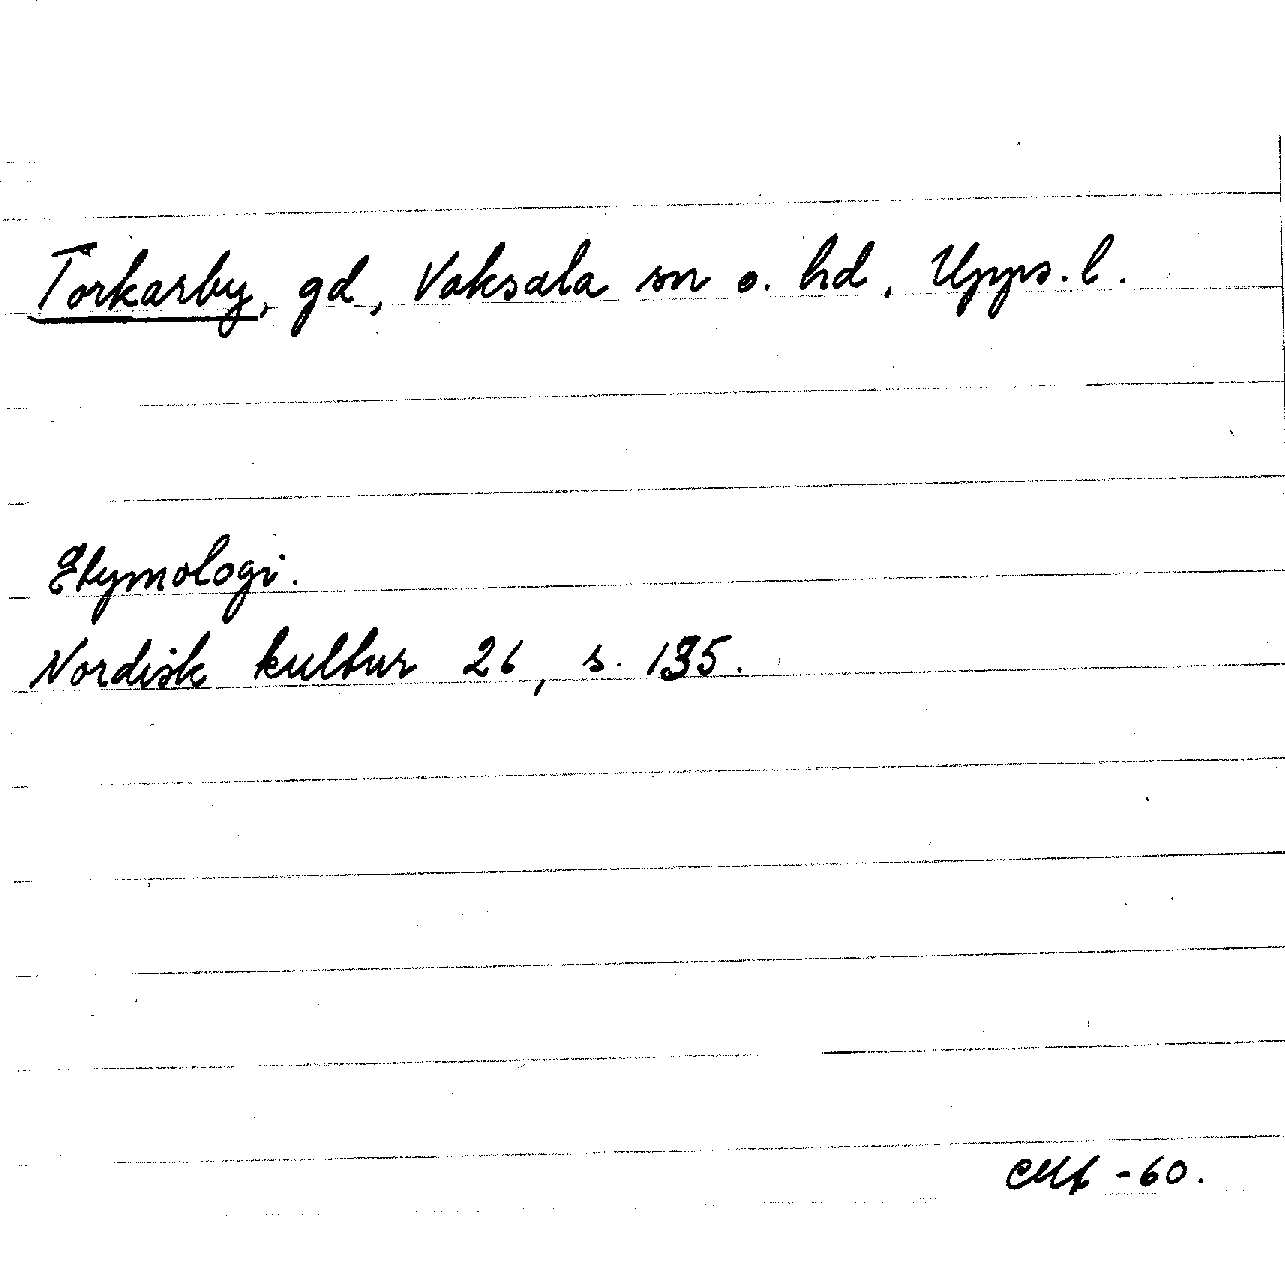 Torkarby, gd, Vaksala sn o. hd, Upps. l.
Etymologi.
Nordisk kultur 26, s. 135.
-60.